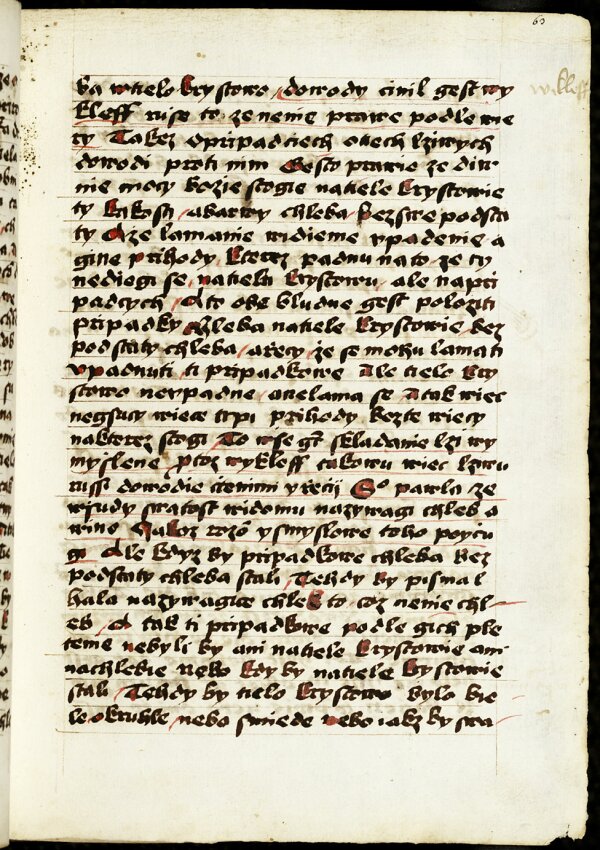 63
wikleff
ba wtielo krystowo dowody cinil gest wy
kleff russe to ze nenie prawe podle wie
ry Takez o pripadciech o tiech lziwych
dowodi proti nim Gesto prawie ze diw
nie mocy bozie stogie na tiele krystowie
ty kikosti a barwy chleba bez swe podsta
ty A ze lamanie widieme vpadenie a
gine prihody kterez padnu na to ze ty
nediegi se na tielu krystowu ale na pri
padcych A to obe bludne gest poloziti
pripadky chleba na tiele krystowie bez
podstaty chleba a rzecy ze se mohu lamati
vpadnuti ti pripadkowe Ale tielo kry
stowo nevpadne ane lama se A tak wiec
negsucy wiece trpi prihody bez te wiecy
na kterez stogi To wse gest skladanie lzi wy
myslene protoz wykleff takowu wiec lziwu
russi dowodie cteními y reci S° pawla ze
wssudy swatost widomu nazywagi chleb a
wino Jakoz rozo y smyslowe toho poycu
gi Ale kdyz by pripadkowe chleba bez
podstaty chleba stali Tehdy by pismo l
halo nazywagice chleb to coz nenie chl
eb A tak ti pripadkowe podle gich ple
tenie nebyli by ani na tiele krystowie ani
na chlebie nebo kdy by na tiele krystowie
stali Tehdy by tielo krystowo bylo bie
le okruhle nebo smiede nebo iakz by swa